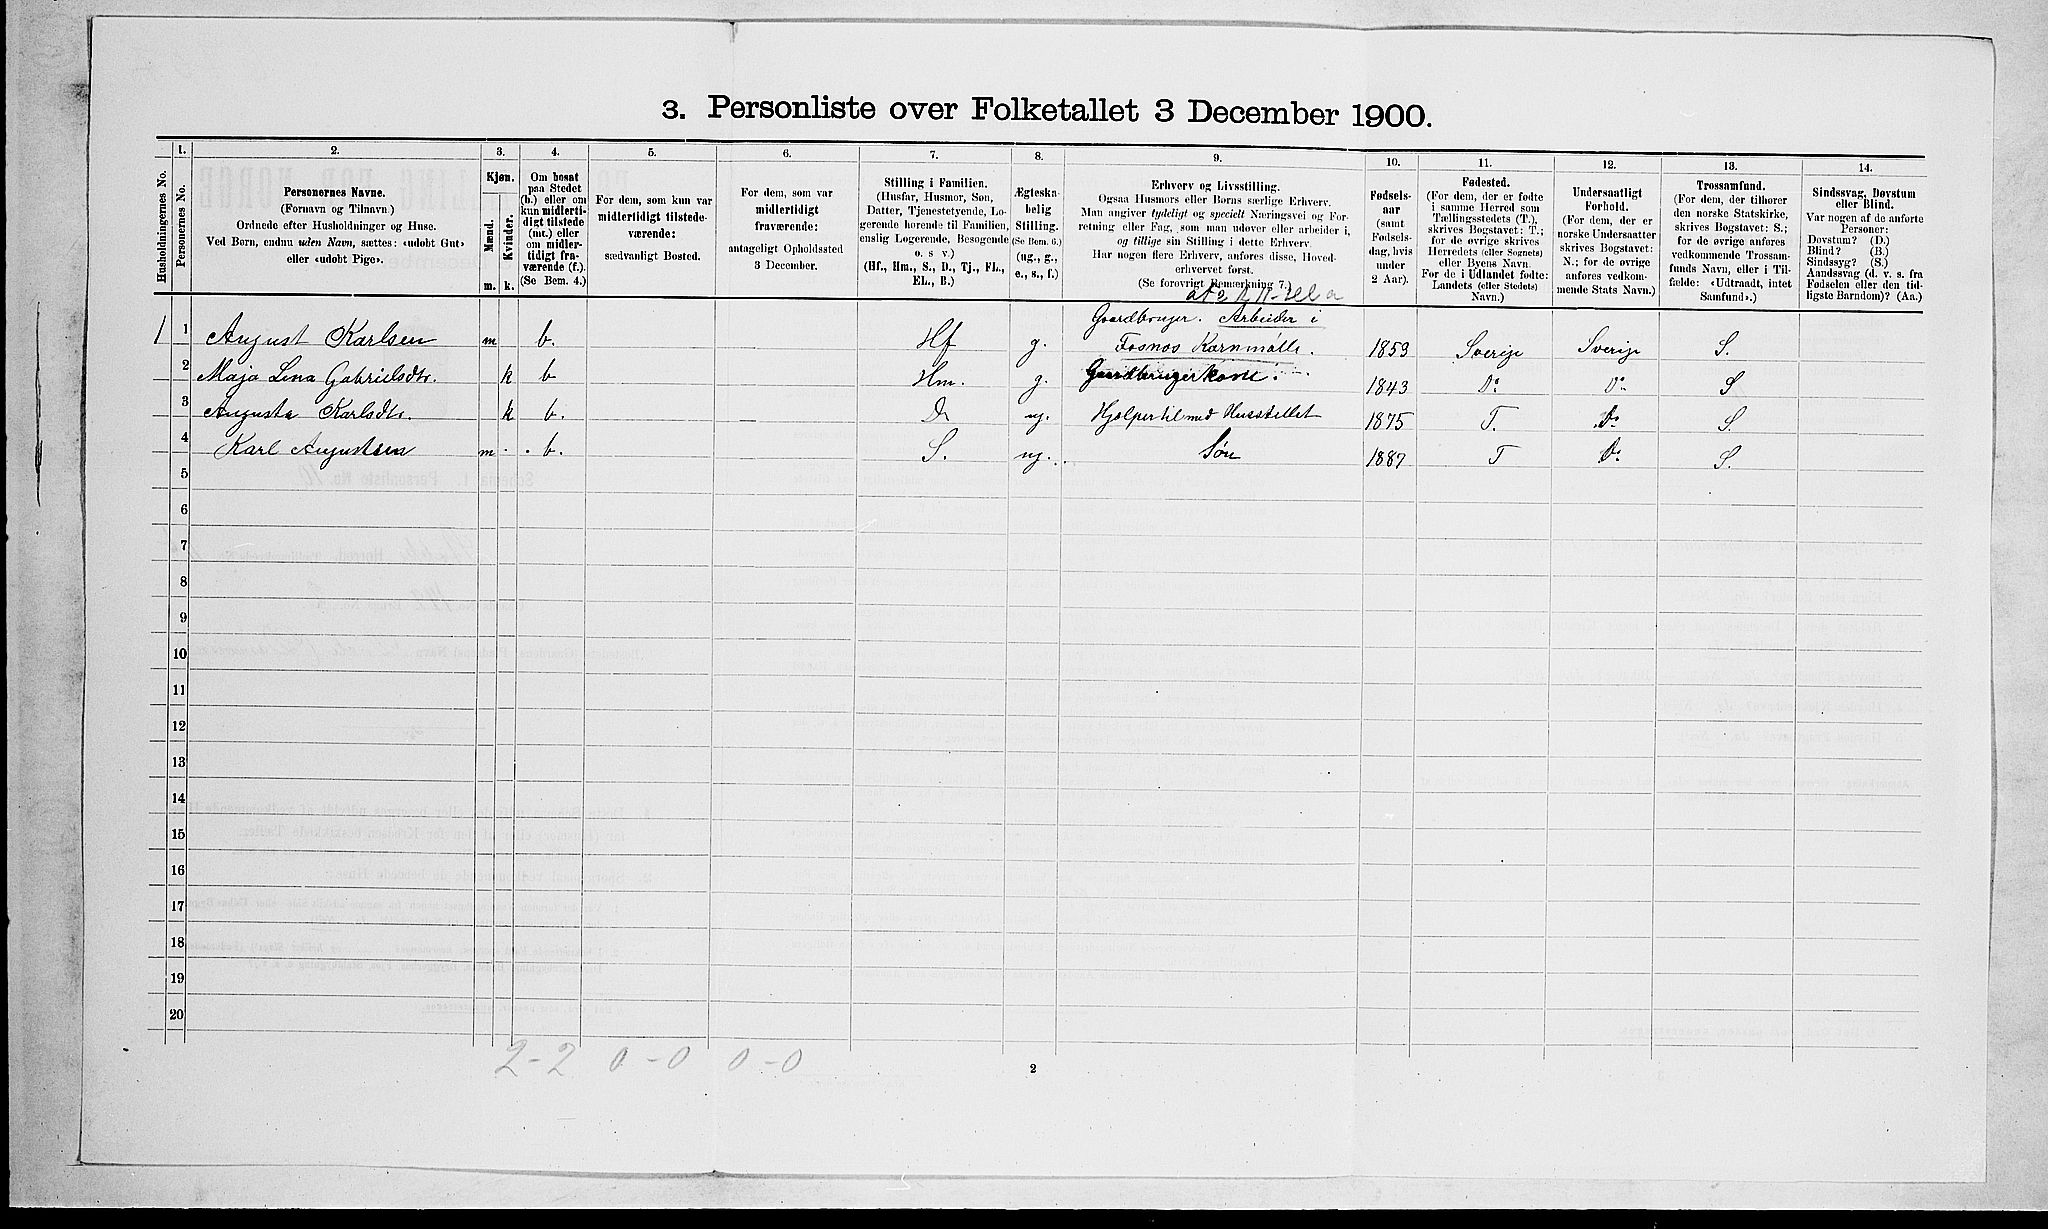 3. Personliste over Folketallet 3 December 1900.
Husholdningernes No.
1.
Personernes No.
2.
Personernes Navne.
(Fornavn og Tilnavn.)
Ordnede efter Husholdninger og Huse.
Ved Børn, endnu uden Navn, sættes: «udobt Gut»
eller «udobt Pige».
3.
Kjøn.
Mænd.
Kvinder.
m. k.
4.
Om bosat
paa Stedet
(b.) eller om
kun midlerti-
digt tilstede
(mt.) eller
om midler-
tidigt fra-
værende (f.).
(Se Bem. 4.)
5.
For dem, som kun var
midlertidigt tilstede-
værende:
sædvanligt Bosted.
6.
For dem, som var
midlertidigt
fraværende:
antageligt Opholdssted
3 December.
7.
Stilling i Familien.
(Husfar, Husmor, Søn,
Datter, Tjenestetyende, Lo-
gerende hørende til Familien,
enslig Logerende, Besøgende
o. s. v.)
(Hf., Hm., S., D., Tj., FL.,
EL., B.)
8.
Ægteska-
belig
Stilling.
(Se Bem. 6.)
(ug., g.,
e., s., f.)
9.
Erhverv og Livsstilling.
Ogsaa Husmors eller Børns særlige Erhverv.
Man angiver tydeligt og specielt Næringsvei og For-
retning eller Fag, som man udøver eller arbeider i,
og tillige sin Stilling i dette Erhverv.
Har nogen flere Erhverv, anføres disse, Hoved-
erhvervet først.
(Se forøvrigt Bemærkning 7.)
10.
Fødsels-
aar
(samt
Fødsels-
dag, hvis
under
2 Aar).
11.
Fødested.
(For dem, der er fødte
i samme Herred som
Tællingsstedets (T.),
skrives Bogstavet: T.;
for de øvrige skrives
Herredets (eller Sognets)
eller Byens Navn.
For de i Udlandet fødte:
Landets (eller Stedets)
Navn.)
12.
Undersaatligt
Forhold.
(For dem, der er
norske Undersaatter
skrives Bogstavet:
N.; for de øvrige
anføres vedkom-
mende Stats Navn.)
13.
Trossamfund.
(For dem, der tilhører
den norske Statskirke,
skrives Bogstavet: S.;
for de øvrige anføres
vedkommende Trossam-
funds Navn, eller i Til-
fælde: «Udtraadt, intet
Samfund».)
14.
Sindssvag, Døvstum
eller Blind.
Var nogen af de anførte
Personer:
Døvstum? (D.)
Blind? (B.)
Sindssyg? (S.)
Aandssvag (d. v. s. fra
Fødselen eller den tid-
ligste Barndom)? (Aa.)
1 1 August Karlsen m b. Hf g. Gaardbruger. Arbeider i
Fosnos Kornmølle. 1859 Sverige Sverige S.
2 Maja Lena Gabrielsdtr. k b Hm. g. Gaardbrugerkone. 1843 Do Do S
3 Augusta Karlsdtr. k b. D ug. Hjælper til med Husstellet 1875 T. Do S.
4 Karl Augustsen m. b. S. ug. Søn 1887 T Do S.
5
6
7
8
9
10
11
12
13
14
15
16
17
18
19
20
2-2 0-0 0-0
2